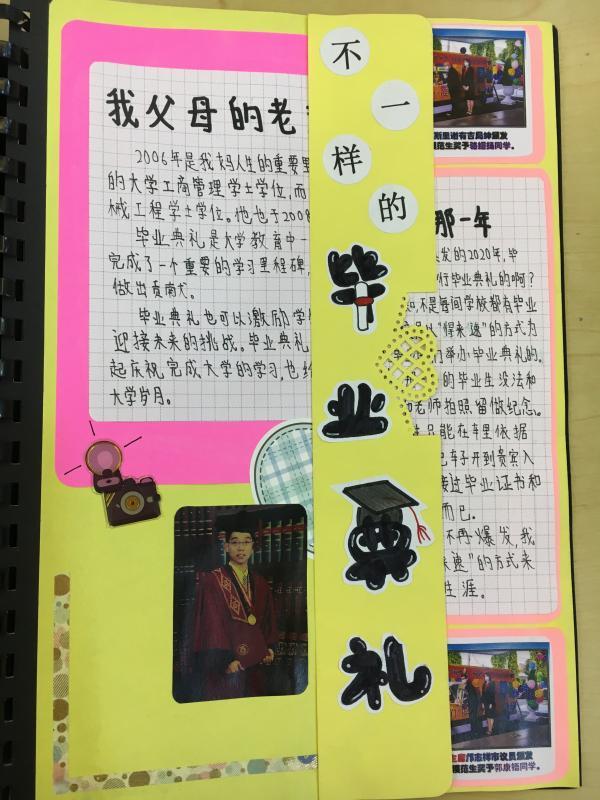 不一样的
毕业典礼
我父母的老
2006年是我妈人生的重要里
的大学工商管理学士学位,而
械工程学士学位。他也于2008
毕业典礼是大学教育中一
完成了一个重要的学习里程碑,
做出贡献。
毕业典礼也可以激励学
迎接未来的挑战。毕业典礼
起庆祝完成大学的学习,也给
大学岁月。
斯里谢有吉局绅颁发
模范生奖予骆绍扬同学。
那一年
发的2020年,毕
行毕业典礼的啊?
知,不是每间学校都有毕业
以“得来速”的方式为
们举办毕业典礼的。
的毕业生没法和
和老师拍照留做纪念。
只能在车里依据
己车子开到贵宾入
接过毕业证书和
而已。
不再爆发,我
来速”的方式来
生涯。
主席邝志梓市议员颁发
模范生奖予郭康铻同学。